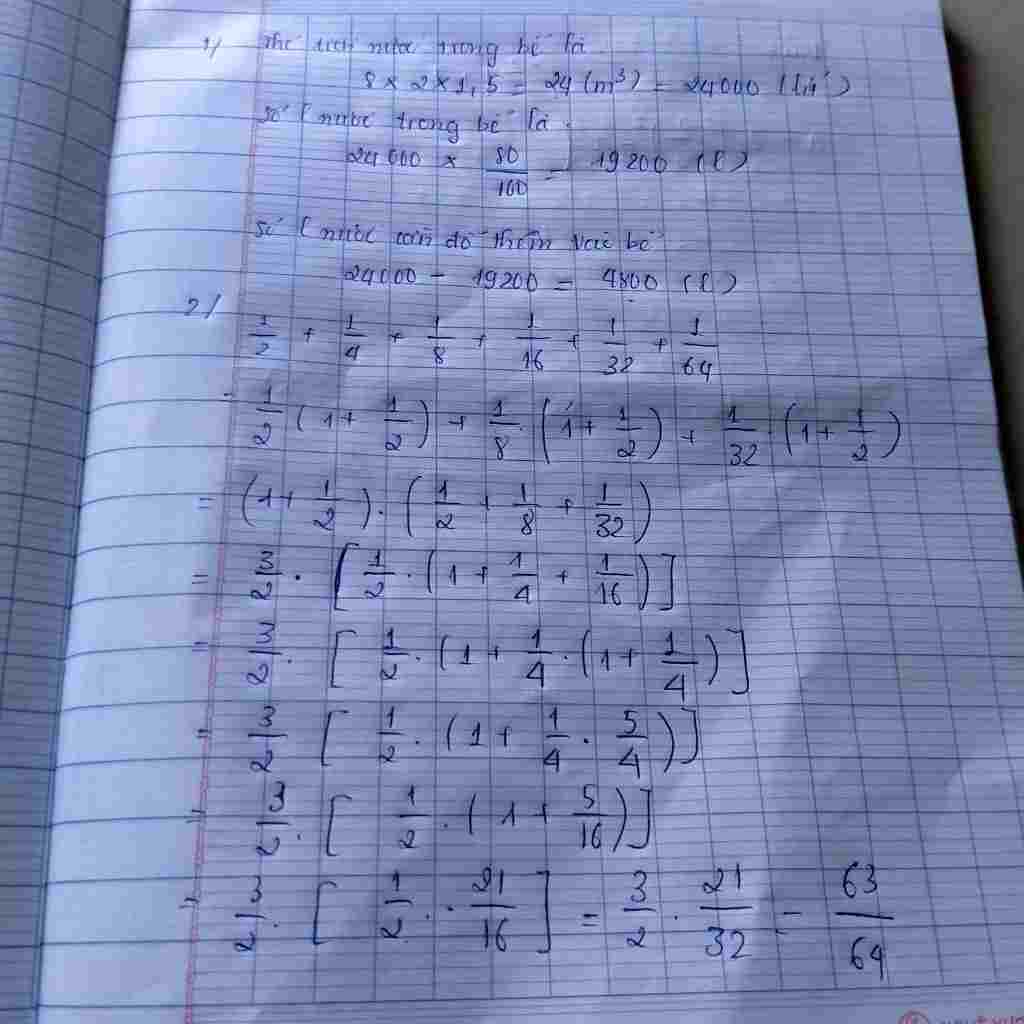 1/ Thể tích nước trong bể là
8 × 2 × 1,5 = 24 (m³) = 24000 (lít)
số l nước trong bể là
24000 × 80/100 = 19200 (l)
số l nước cần đổ thêm vào bể
24000 - 19200 = 4800 (l)
2/ 1/2 + 1/4 + 1/8 + 1/16 + 1/32 + 1/64
= 1/2 (1 + 1/2) + 1/8 . (1 + 1/2) + 1/32 . (1 + 1/2)
= (1 + 1/2) . (1/2 + 1/8 + 1/32)
= 3/2 . [1/2 . (1 + 1/4 + 1/16)]
= 3/2 . [1/2 . (1 + 1/4 . (1 + 1/4)]
= 3/2 [1/2 . (1 + 1/4 . 5/4)]
= 3/2 . [1/2 . (1 + 5/16)]
= 3/2 . [1/2 . 21/16] = 3/2 . 21/32 = 63/64